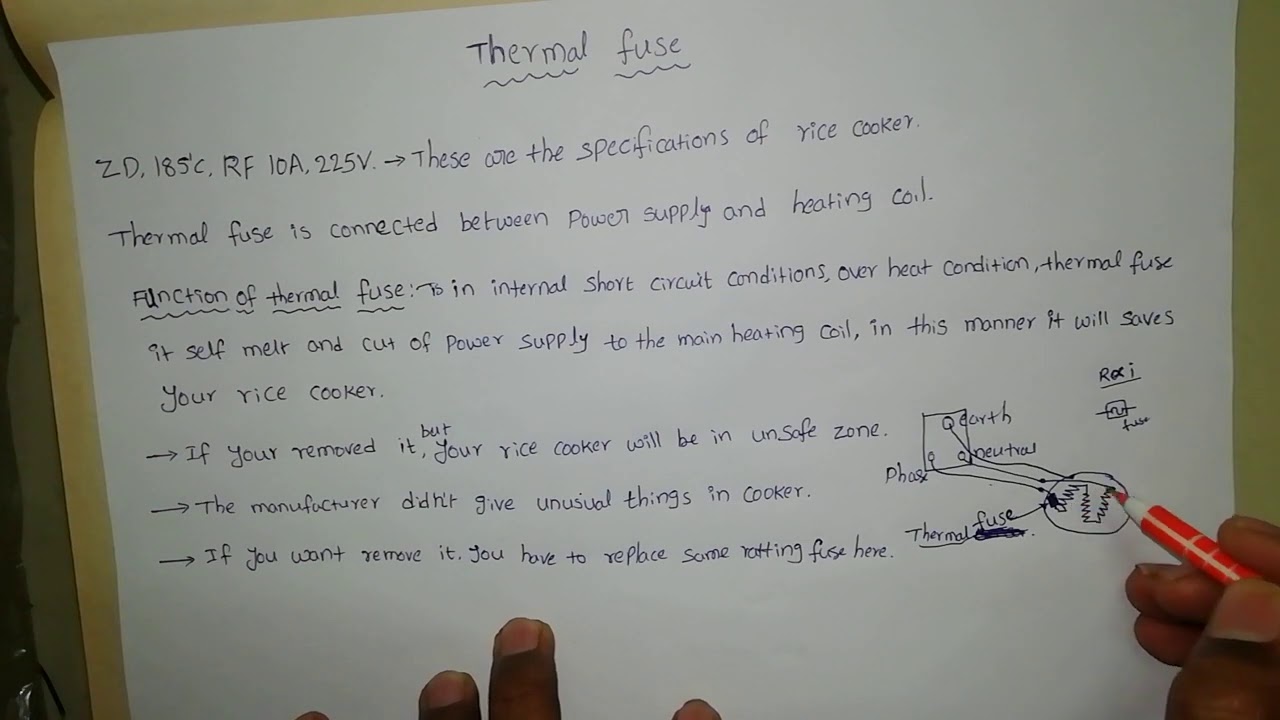 Thermal fuse
ZD, 185°c, RF 10A, 225V. → These are the specifications of rice cooker.
Thermal fuse is connected between Power supply and heating coil.
Function of thermal fuse:→ in internal short circuit conditions, over heat condition, thermal fuse
it self melt and cut of power supply to the main heating coil, in this manner it will saves
Your rice cooker.
→ If your removed it, but your rice cooker will be in unsafe zone.
→ The manufacturer didn't give unusual things in cooker.
→ If you want remove it. you have to replace same ratting fuse here.
R∝i
fuse
earth
neutral
Phase
Thermal fuse